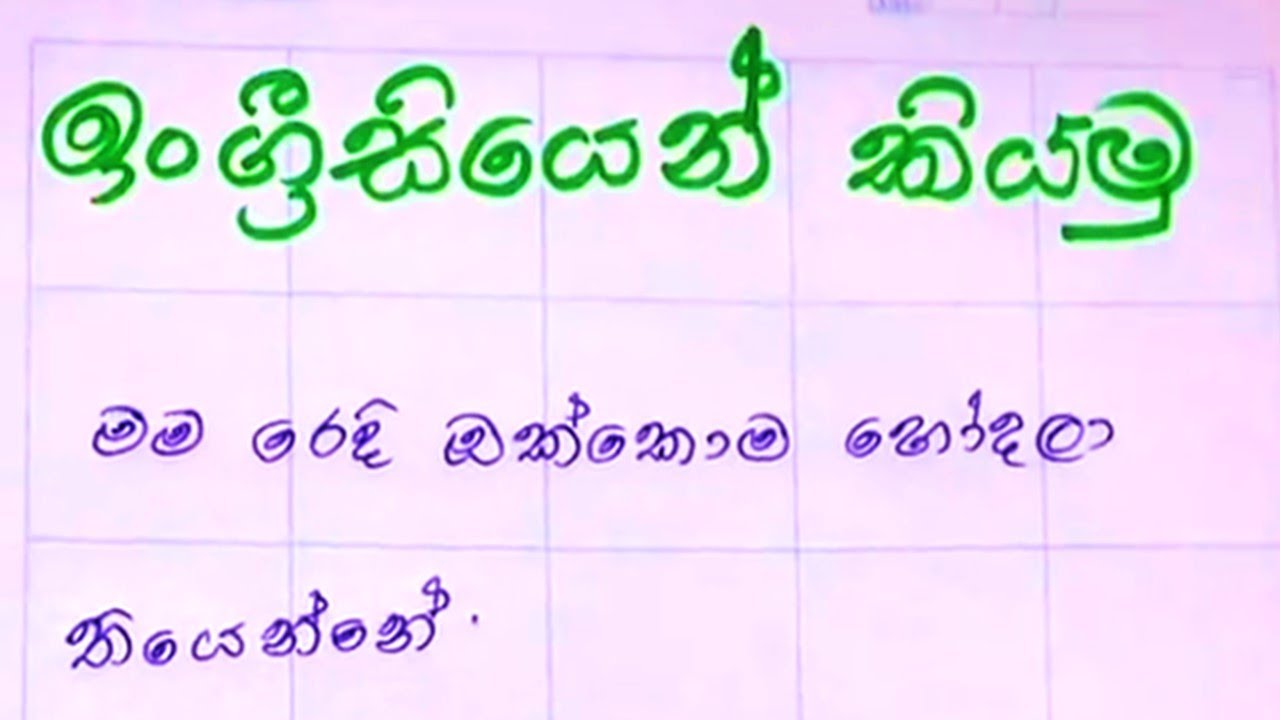 ඉංග්‍රීසියෙන් කියමු
මම රෙදි ඔක්කොම හෝදලා
තියෙන්නේ.